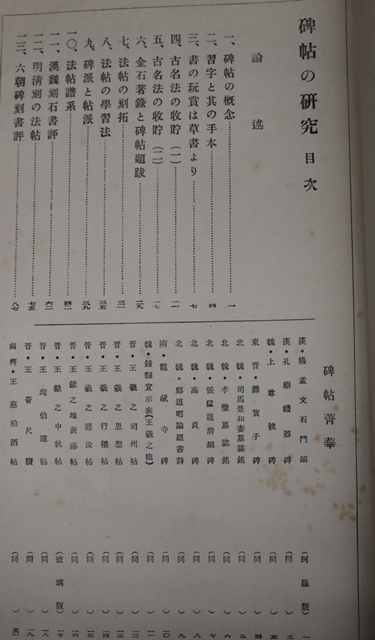 碑帖の研究 目次
論述
一、碑帖の概念 一
二、習字と其の手本 四
三、書の玩賞は草書より 七
四、古名法の收貯(一) 一一
五、古名法の收貯(二) 一七
六、金石著錄と碑帖題跋
七、法帖の刻拓
八、法帖の學習法
九、碑派と帖派
一〇、法帖譜系
一一、漢魏刻石書評
一二、明清刻の法帖
一三、六朝碑刻書評
碑帖菁華
漢・楊孟文石門頌 (珂羅版) 一
漢・孔廟禮器碑 (同)
魏・上尊號碑 (同)
東晉・爨寶子碑 (同)
北魏・司馬景和妻墓誌銘 (同)
北魏・李璧墓誌銘 (同)
北魏・張猛龍清頌碑 (同)
北魏・高貞碑 (同)
北魏・鄭道昭論經書詩 (同)
隋・龍藏寺碑 (同) 一〇
魏・鍾繇宣示表(王羲之臨) (同) 一一
晉・王羲之司州帖 (同) 一二
晉・王羲之思想帖 (同) 一三
晉・王羲之行穰帖 (同) 一四
晉・王羲之 帖 (同) 一五
晉・王獻之地黃湯帖 (同) 一六
晉・王獻之中秋帖 (玻璃版) 一七
晉・王珣伯遠帖 (同) 一八
晉・王薈尺牘 (同) 一九
南齊・王慈柏酒帖 (同)